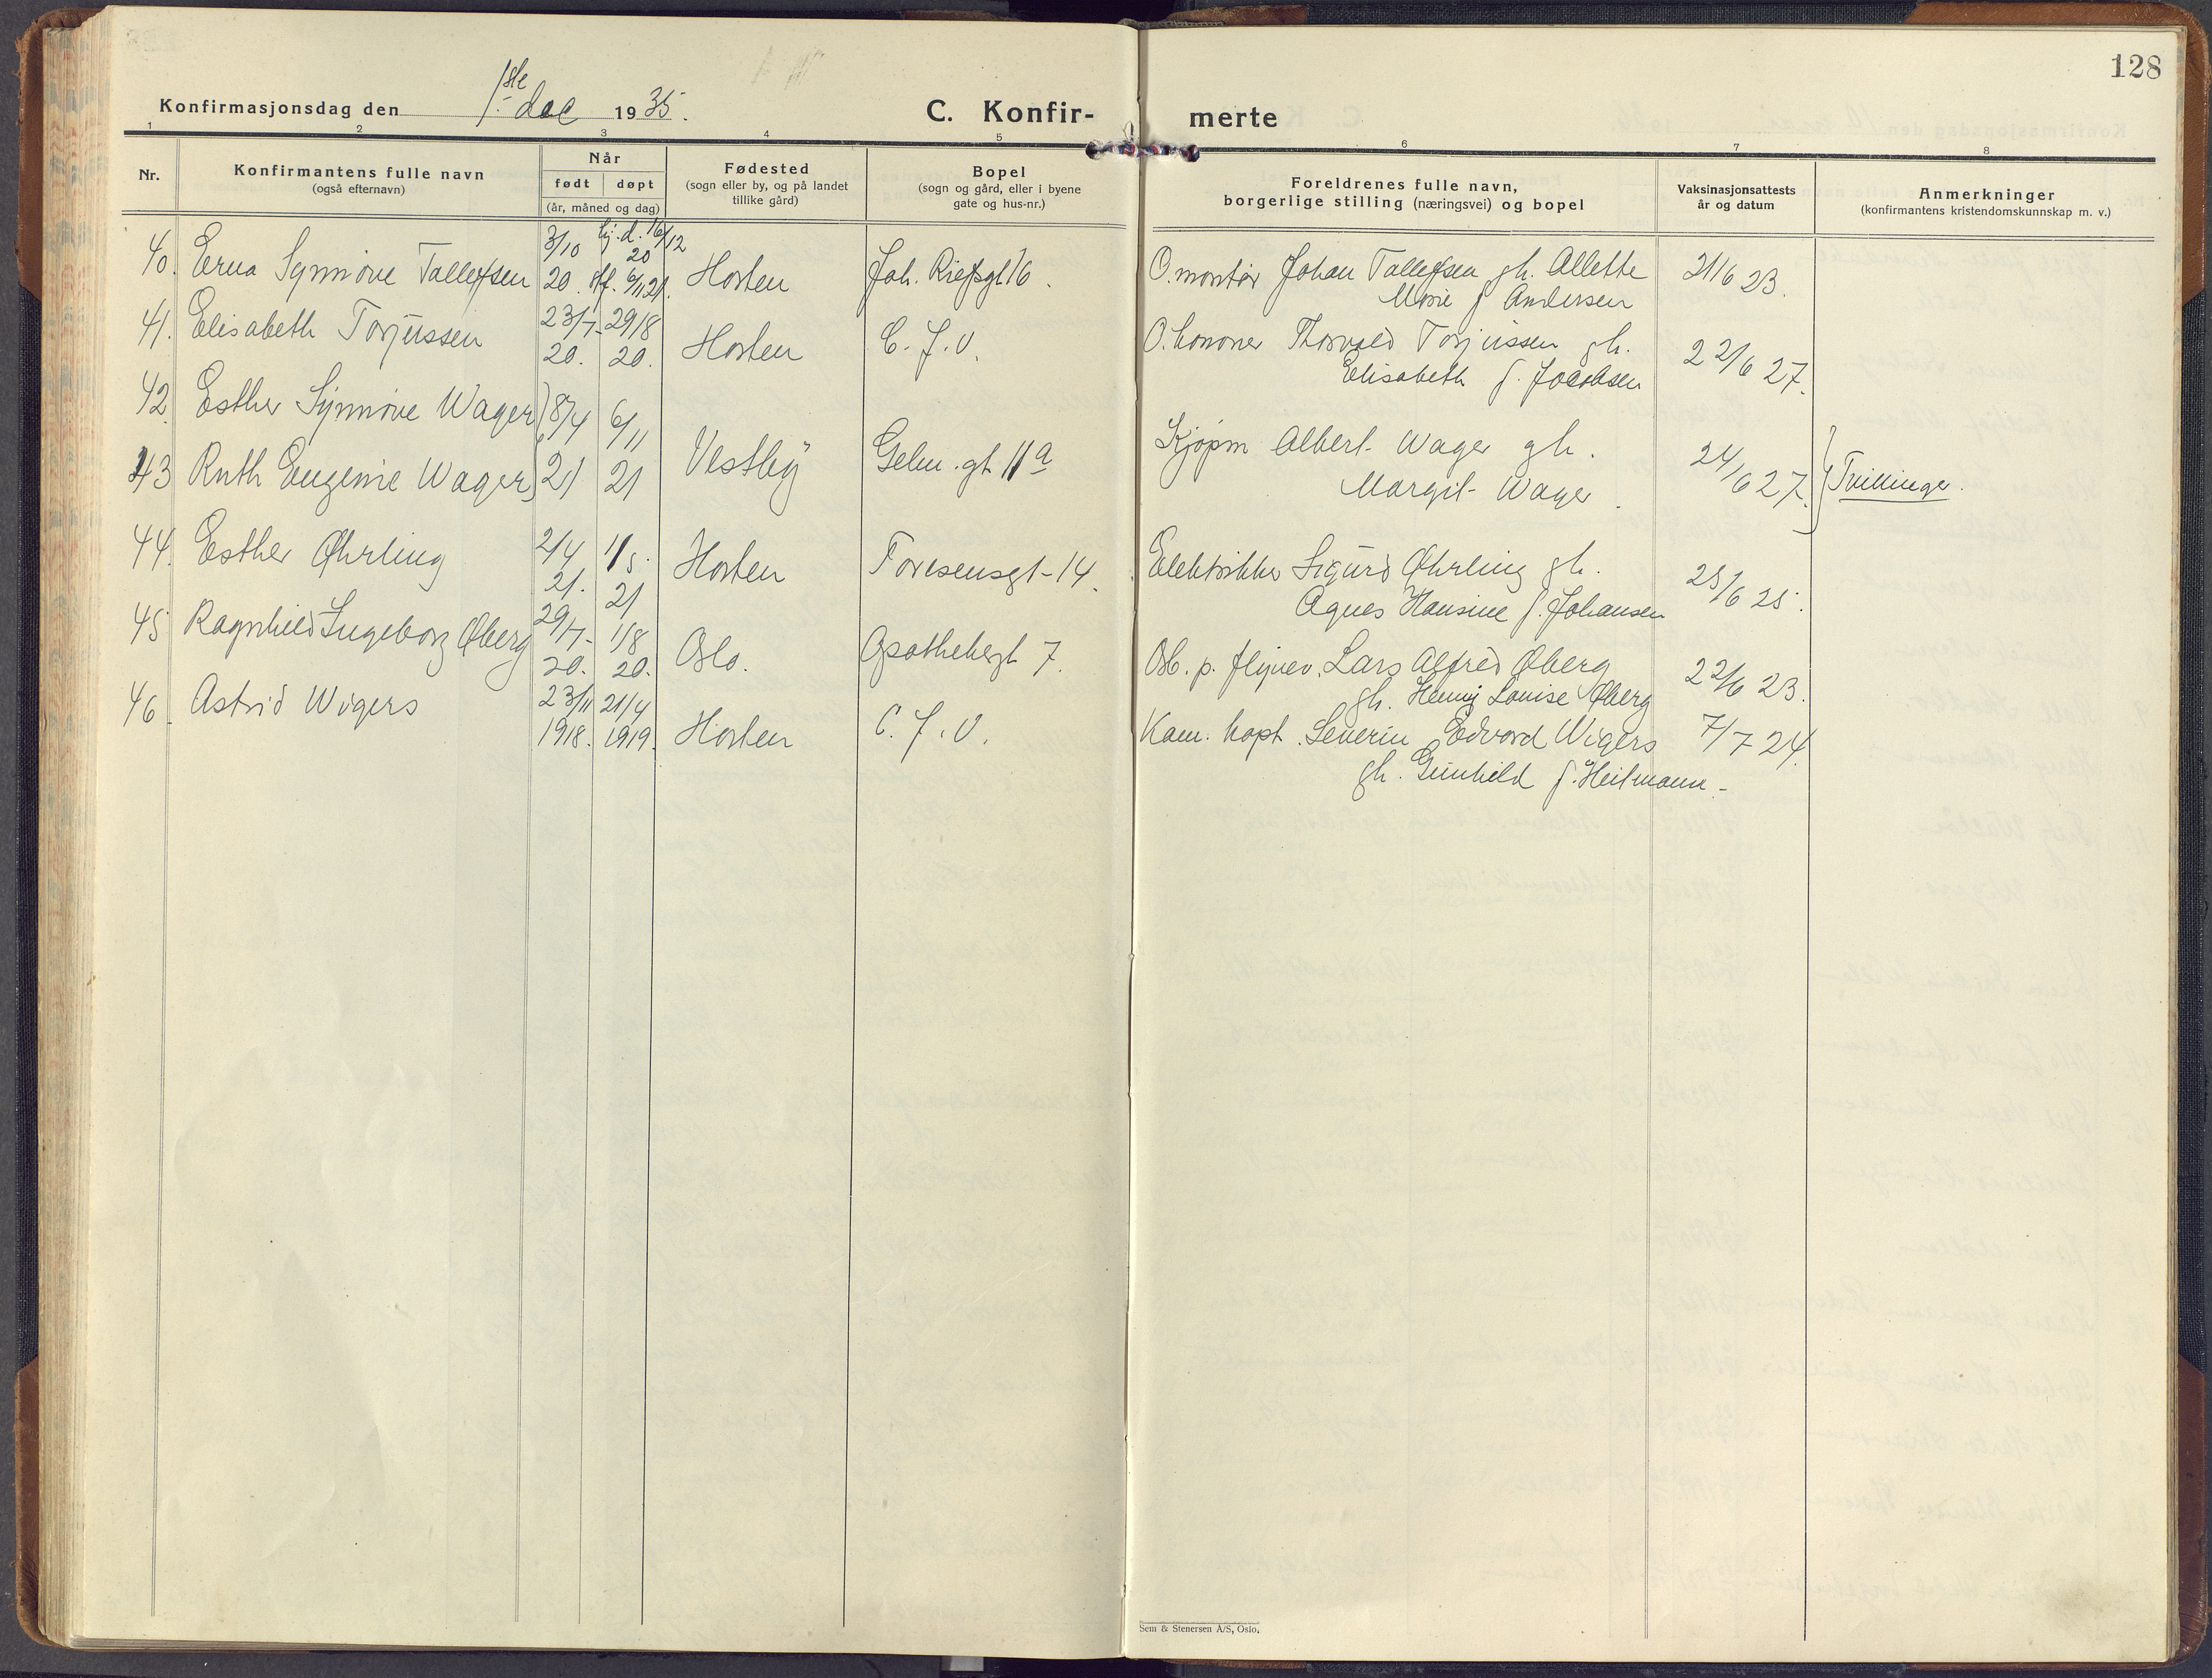 128
Konfirmasjonsdag den 1ste dec 1935.
C. Konfir- merte
1 2 3 4 5 6 7 8
Nr.
Konfirmantens fulle navn
(også efternavn)
Når
født døpt
(år, måned og dag)
Fødested
(sogn eller by, og på landet
tillike gård)
Bopel
(sogn og gård, eller i byene
gate og hus-nr.)
Foreldrenes fulle navn,
borgerlige stilling (næringsvei) og bopel
Vaksinasjonsattests
år og datum
Anmerkninger
(konfirmantens kristendomskunnskap m. v.)
40. Erna Synnøve Tallefsen 3/10 20. hj. d. 16/12 20 stf. 6/11 21. Horten Joh. Riefsgt 16. O.montør Johan Tallefsen gh. Allette
Marie f Andersen 21/6 23.
41. Elisabeth Torjussen 23/7- 20. 29/8 20. Horten C. J. V. O. kanoner Thorvald Torjussen gh.
Elisabeth f. Jacobsen 22/6 27.
42 Esther Synnøve Wager
43 Ruth Eugenie Wager 8/4 21 6/11 21 Vestby Gelm. gt 11 a Kjøpm Albert Wager gh.
Margit Wager. 24/6 27. Tvillinger.
44. Esther Øhrling 2/4 21. 1/5. 21 Horten Foresensgt-14. Elektrikker Sigurd Øhrling gh.
Agnes Hansine f. Johansen 25/6 25.
45 Ragnhild Ingeborg Øberg 29/7- 20. 1/8 20. Oslo. Apothekergt 7. p. flyvev. Lars Alfred Øberg
gh. Henny Louise Øberg 22/6 23.
46. Astrid Wigers 23/11 1918. 21/4 1919. Horten C. J. V. Kam. kapt. Severin Edvard Wigers
gh. Gunhild f. Heitmann- 7/7 24.
Sem & Stenersen A/S, Oslo.